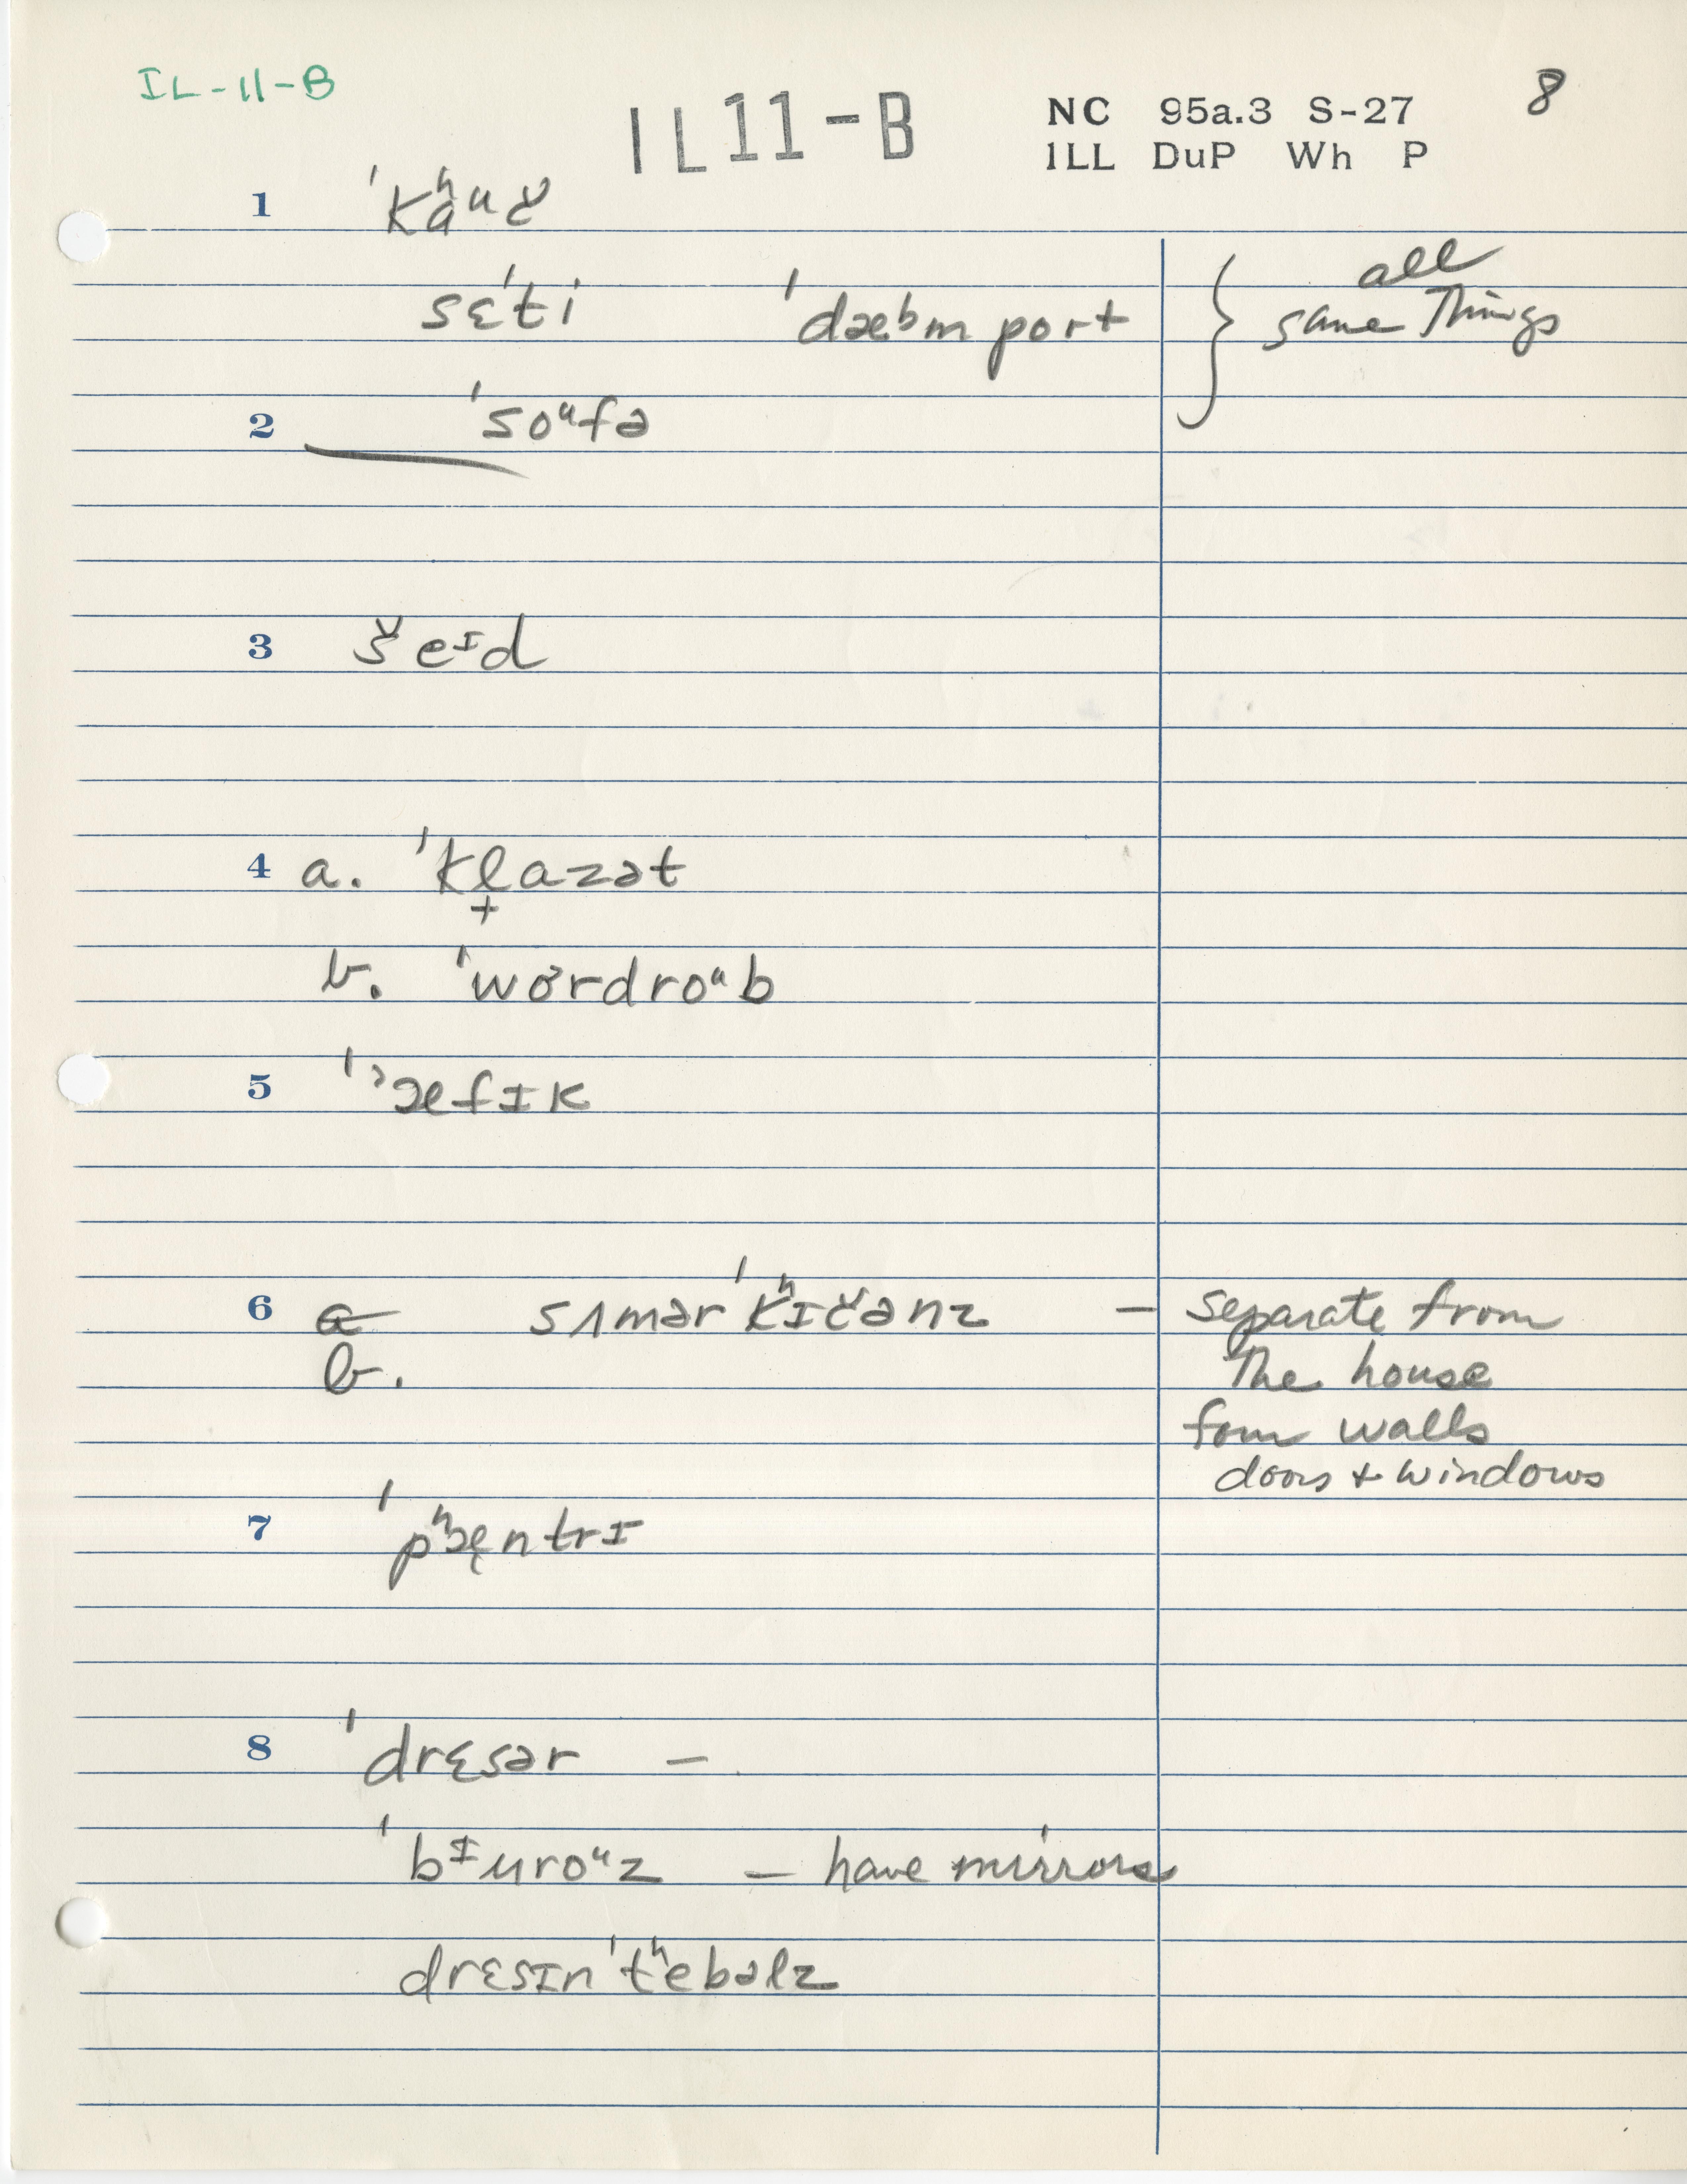 IL-11-B
IL11-B
NC 95a.3 S-27 8
ILL DuP Wh P
1 ˈkʰaᵘč
sɛˈti ˈdæᵇmport } all same Things
2 ˈsoᵘfə
3 šeᴵd
4 a. ˈkl̟azət
b. ˈwɔrdroᵘb
5 ˈʔæfɪk
6 a sʌmərˈkʰɪčənz — separate from
b. The house
four walls
doors + windows
7 ˈpʰæ̨ntrɪ
8 ˈdrɛsər —
ˈbᴵuroᵘz — have mirrors
drɛsɪnˈtʰebəlz